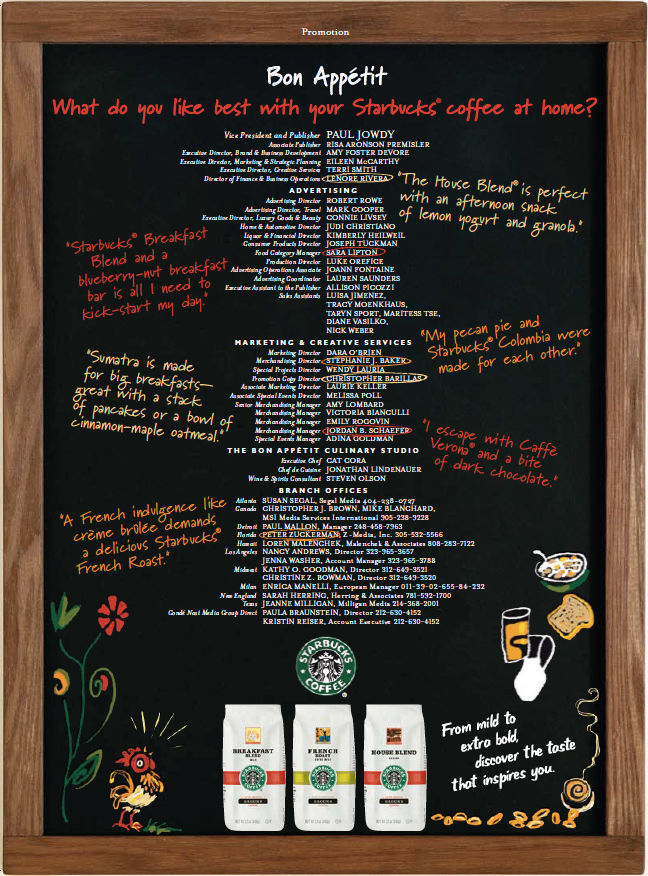 Promotion
Bon Appétit
What do you like best with your Starbucks® coffee at home?
Vice President and Publisher PAUL JOWDY
Associate Publisher RISA ARONSON PREMISLER
Executive Director, Brand & Business Development AMY FOSTER DEVORE
Executive Director, Marketing & Strategic Planning EILEEN McCARTHY
Executive Director, Creative Services TERRI SMITH
Director of Finance & Business Operations LENORE RIVERA
"The House Blend® is perfect
with an afternoon snack
of lemon yogurt and granola."
ADVERTISING
Advertising Director ROBERT ROWE
Advertising Director, Travel MARK COOPER
Executive Director, Luxury Goods & Beauty CONNIE LIVSEY
Home & Automotive Director JUDI CHRISTIANO
Liquor & Financial Director KIMBERLY HEILWEIL
Consumer Products Director JOSEPH TUCKMAN
Food Category Manager SARA LIPTON
Production Director LUKE OREFICE
Advertising Operations Associate JOANN FONTAINE
Advertising Coordinator LAUREN SAUNDERS
Executive Assistant to the Publisher ALLISON PICOZZI
Sales Assistants LUISA JIMENEZ,
TRACY MOENKHAUS,
TARYN SPORT, MARITESS TSE,
DIANE VASILKO,
NICK WEBER
"Starbucks® Breakfast
Blend and a
blueberry-nut breakfast
bar is all I need to
kick-start my day."
MARKETING & CREATIVE SERVICES
Marketing Director DARA O'BRIEN
Merchandising Director STEPHANIE J. BAKER
Special Projects Director WENDY LAURIA
Promotion Copy Director CHRISTOPHER BARILLAS
Associate Marketing Director LAURIE KELLER
Associate Special Events Director MELISSA POLL
Senior Merchandising Manager AMY LOMBARD
Merchandising Manager VICTORIA BIANCULLI
Merchandising Manager EMILY ROGOVIN
Merchandising Manager JORDAN B. SCHAEFER
Special Events Manager ADINA GOLDMAN
"My pecan pie and
Starbucks® Colombia were
made for each other."
"Sumatra is made
for big breakfasts—
great with a stack
of pancakes or a bowl of
cinnamon-maple oatmeal."
"I escape with Caffè
Verona® and a bite
of dark chocolate."
THE BON APPÉTIT CULINARY STUDIO
Executive Chef CAT CORA
Chef de Cuisine JONATHAN LINDENAUER
Wine & Spirits Consultant STEVEN OLSON
BRANCH OFFICES
Atlanta SUSAN SEGAL, Segal Media 404-238-0727
Canada CHRISTOPHER J. BROWN, MIKE BLANCHARD,
MSI Media Services International 905-238-9228
Detroit PAUL MALLON, Manager 248-458-7963
Florida PETER ZUCKERMAN, Z-Media, Inc. 305-532-5566
Hawaii LOREN MALENCHEK, Malenchek & Associates 808-283-7122
Los Angeles NANCY ANDREWS, Director 323-965-3657
JENNA WASHER, Account Manager 323-965-3788
Midwest KATHY O. GOODMAN, Director 312-649-3521
CHRISTINE Z. BOWMAN, Director 312-649-3520
Milan ENRICA MANELLI, European Manager 011-39-02-655-84-232
New England SARAH HERRING, Herring & Associates 781-592-1700
Texas JEANNE MILLIGAN, Milligan Media 214-368-2001
Condé Nast Media Group Direct PAULA BRAUNSTEIN, Director 212-630-4152
KRISTIN REISER, Account Executive 212-630-4152
"A French indulgence like
crème brûlée demands
a delicious Starbucks®
French Roast."
STARBUCKS
COFFEE
BREAKFAST
BLEND
FRENCH
ROAST
HOUSE BLEND
From mild to
extra bold,
discover the taste
that inspires you.